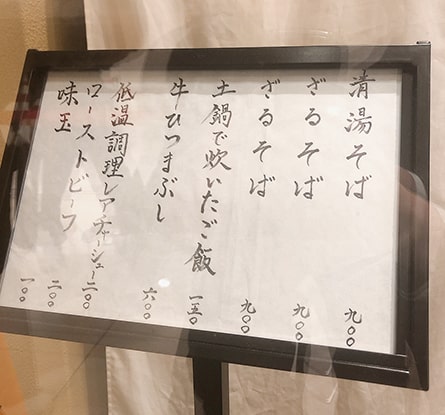 清湯そば 九〇〇
ざるそば 九〇〇
ざるそば 九〇〇
土鍋で炊いたご飯 一五〇
牛ひつまぶし 六〇〇
低温調理レアチャーシュー 二〇〇
ローストビーフ 二〇〇
味玉 一〇〇